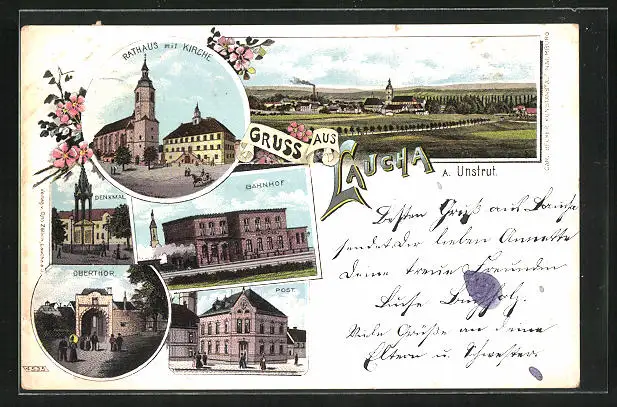 RATHAUS mit KIRCHE
GRUSS AUS
LAUCHA
A. Unstrut.
DENKMAL
BAHNHOF
OBERTHOR
POST
Besten Gruß aus Laucha
sendet Dir lieben Annette
Deine treue Freundin
Luise Buchholz.
Viele Grüße an deine
Eltern u. Schwester.